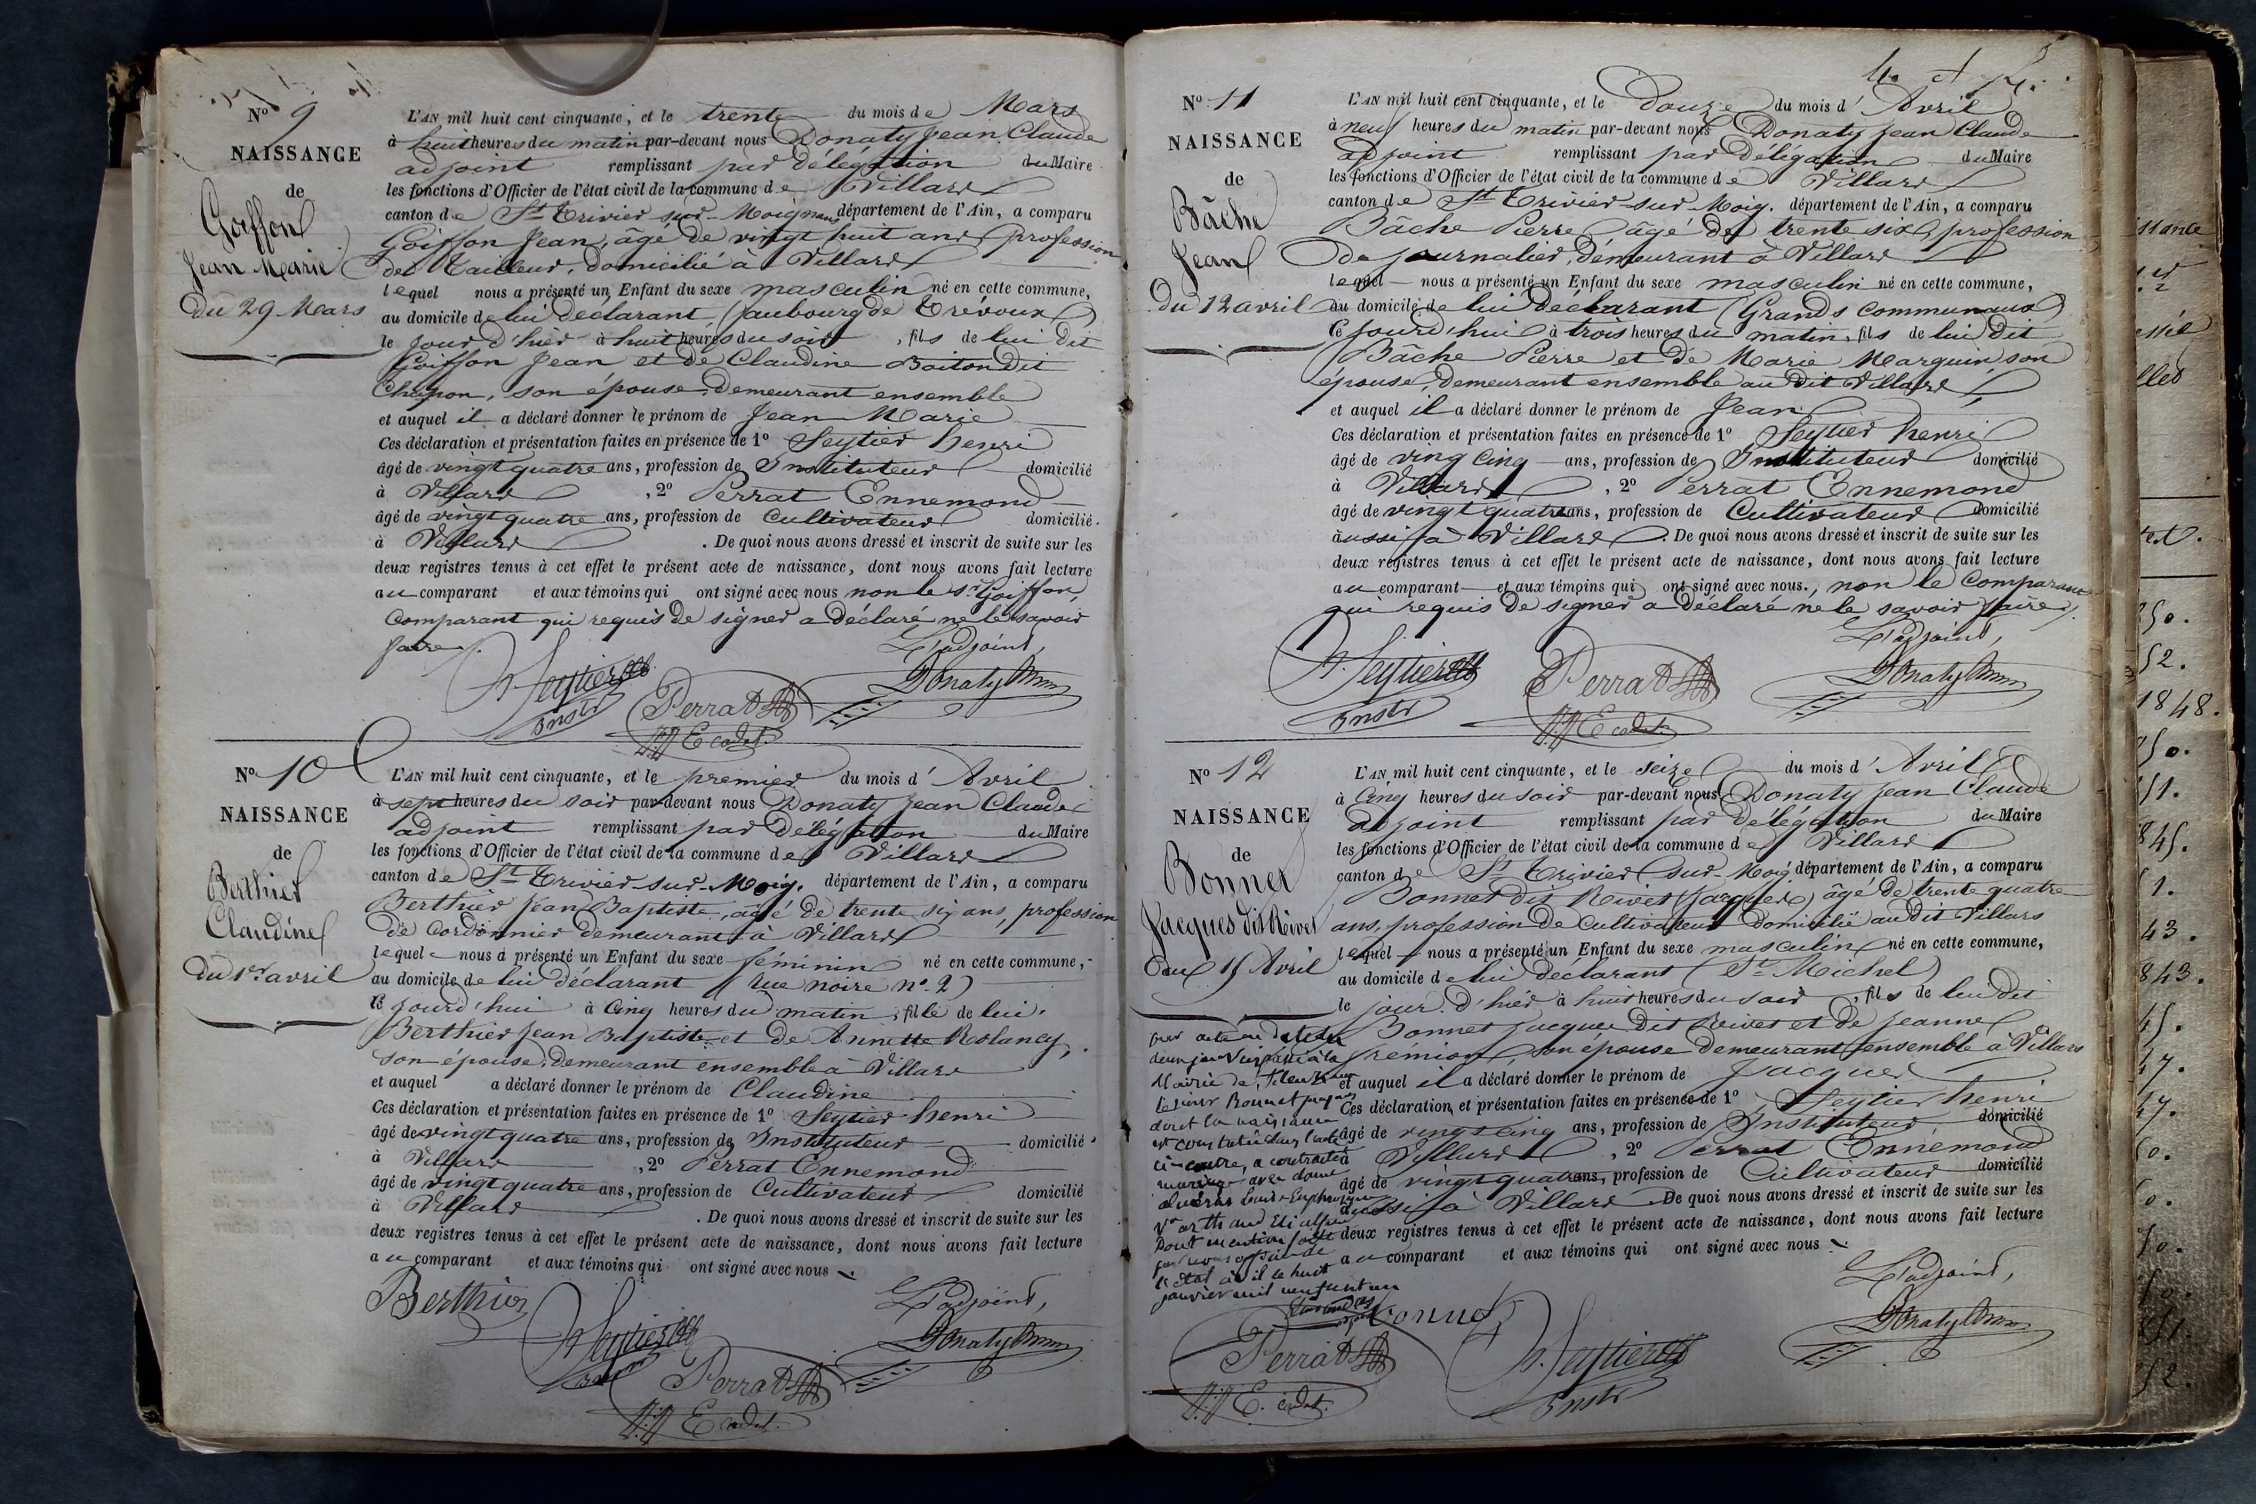 N° 9
NAISSANCE
de
Goiffon
Jean Marie
du 29 Mars
L'AN mil huit cent cinquante, et le trente du mois de Mars
à huit heures du matin par-devant nous Donaty Jean Claude
adjoint remplissant par délégation du Maire
les fonctions d'Officier de l'état civil de la commune de Villars
canton de St Trivier sur Moignans département de l'Ain, a comparu
Goiffon Jean, âgé de vingt huit ans, profession
de Tailleur, domicilié à Villars
lequel nous a présenté un Enfant du sexe masculin né en cette commune,
au domicile de lui déclarant (faubourg de Trévoux)
le jour d'hier à huit heures du soir, fils de lui dit
Goiffon Jean et de Claudine Boiton dit
Chapon, son épouse, demeurant ensemble
et auquel il a déclaré donner le prénom de Jean Marie
Ces déclaration et présentation faites en présence de 1° Seytier henri
âgé de vingt quatre ans, profession de Instituteur domicilié
à Villars, 2° Perrat Ennemond
âgé de vingt quatre ans, profession de Cultivateur domicilié
à Villars. De quoi nous avons dressé et inscrit de suite sur les
deux registres tenus à cet effet le présent acte de naissance, dont nous avons fait lecture
au comparant et aux témoins qui ont signé avec nous non le Sr Goiffon,
Comparant qui requis de signer a déclaré ne le savoir
faire.
L'adjoint,
h. Seytier
Instr
Perrat
E cadet
Donaty
N° 10
NAISSANCE
de
Berthier
Claudine
du 1er avril
L'AN mil huit cent cinquante, et le premier du mois d'Avril
à sept heures du soir par-devant nous Donaty Jean Claude
adjoint remplissant par Délégation du Maire
les fonctions d'Officier de l'état civil de la commune de Villars
canton de St Trivier-sur-Moig. département de l'Ain, a comparu
Berthier Jean Baptiste, âgé de trente six ans, profession
de Cordonnier demeurant à Villars
lequel nous a présenté un Enfant du sexe féminin né en cette commune,
au domicile de lui déclarant (Rue noire n° 2)
ce jourd'hui à cinq heures du matin, fille de lui.
Berthier Jean Baptiste et de Annette Rolancy,
son épouse, demeurant ensemble à Villars
et auquel a déclaré donner le prénom de Claudine
Ces déclaration et présentation faites en présence de 1° Seytier henri
âgé de vingt quatre ans, profession de Instituteur domicilié
à Villars, 2° Perrat Ennemond
âgé de vingt quatre ans, profession de Cultivateur domicilié
à Villars. De quoi nous avons dressé et inscrit de suite sur les
deux registres tenus à cet effet le présent acte de naissance, dont nous avons fait lecture
au comparant et aux témoins qui ont signé avec nous
L'adjoint,
Berthier
h. Seytier
Donaty
Perrat
E cadet
N° 11
NAISSANCE
de
Bâche
Jean
Du 12 avril
L'AN mil huit cent cinquante, et le Douze du mois d'Avril
à neuf heures du matin par-devant nous Donaty Jean Claude
adjoint remplissant par Délégation du Maire
les fonctions d'Officier de l'état civil de la commune de Villars
canton de St Trivier-sur-Moig. département de l'Ain, a comparu
Bâche Pierre âgé de trente six, profession
de journalier, demeurant à Villars
lequel nous a présenté un Enfant du sexe masculin né en cette commune,
au domicile de lui déclarant (Grands Communaux)
ce jourd'hui à trois heures du matin, fils de lui dit
Bâche Pierre et de Marie Marguin, son
épouse, demeurant ensemble au dit Villars
et auquel il a déclaré donner le prénom de Jean
Ces déclaration et présentation faites en présence de 1° Seytier henri
âgé de ving cinq ans, profession de Instituteur domicilié
à Villars, 2° Perrat Ennemond
âgé de vingt quatre ans, profession de Cultivateur domicilié
aussi à Villars. De quoi nous avons dressé et inscrit de suite sur les
deux registres tenus à cet effet le présent acte de naissance, dont nous avons fait lecture
au comparant et aux témoins qui ont signé avec nous., non le Comparant
qui requis de signer a déclaré ne le savoir faire.
L'adjoint,
h. Seytier
Instr
Perrat
E cadet
Donaty
N° 12
NAISSANCE
de
Bonnet
Jacques dit Rivet
du 15 Avril
L'AN mil huit cent cinquante, et le seize du mois d'Avril
à cinq heures du soir par-devant nous Donaty Jean Claude
adjoint remplissant par Délégation du Maire
les fonctions d'Officier de l'état civil de la commune de Villars
canton de St Trivier sur Moig département de l'Ain, a comparu
Bonnet dit Rivet (Jacques) âgé de trente quatre
ans, profession de Cultivateur domicilié au dit Villars
lequel nous a présenté un Enfant du sexe masculin né en cette commune,
au domicile de lui déclarant (St Michel)
le jour d'hier à huit heures du soir, fils de lui dit
Bonnet Jacques dit Rivet et de Jeanne
Frémion, son épouse demeurant ensemble à Villars
et auquel il a déclaré donner le prénom de Jacques
Ces déclaration et présentation faites en présence de 1° Seytier henri
âgé de vingt cinq ans, profession de Instituteur domicilié
à Villars, 2° Perrat Ennemond
âgé de vingt quatre ans, profession de Cultivateur domicilié
aussi à Villars. De quoi nous avons dressé et inscrit de suite sur les
deux registres tenus à cet effet le présent acte de naissance, dont nous avons fait lecture
au comparant et aux témoins qui ont signé avec nous
par acte en date du
deux janvier passé à la
Mairie de
le sieur Bonnet Jacques
dont la naissance
est constatée dans l'acte
ci-contre, a contracté
mariage avec dame
Dont mention faite
par nous officier de
l'état civil le huit
janvier mil neuf cent un
L'adjoint,
Bonnet
Perrat
E. cadet.
h. Seytier
Instr
Donaty
50.
52.
1848.
50.
51.
845.
51.
43.
843.
45.
47.
47.
50.
50.
50.
50.
851.
52.